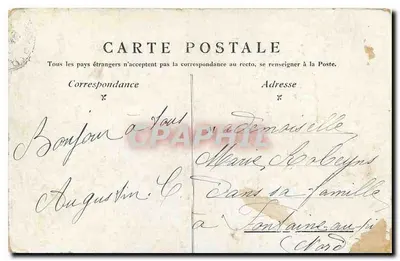 CARTE POSTALE
Tous les pays étrangers n'acceptent pas la correspondance au recto, se renseigner à la Poste.
Correspondance
Adresse
Bonjour à tous
Augustin. C
Mademoiselle
Marie
dans sa famille
à Fontaine-au-
Nord